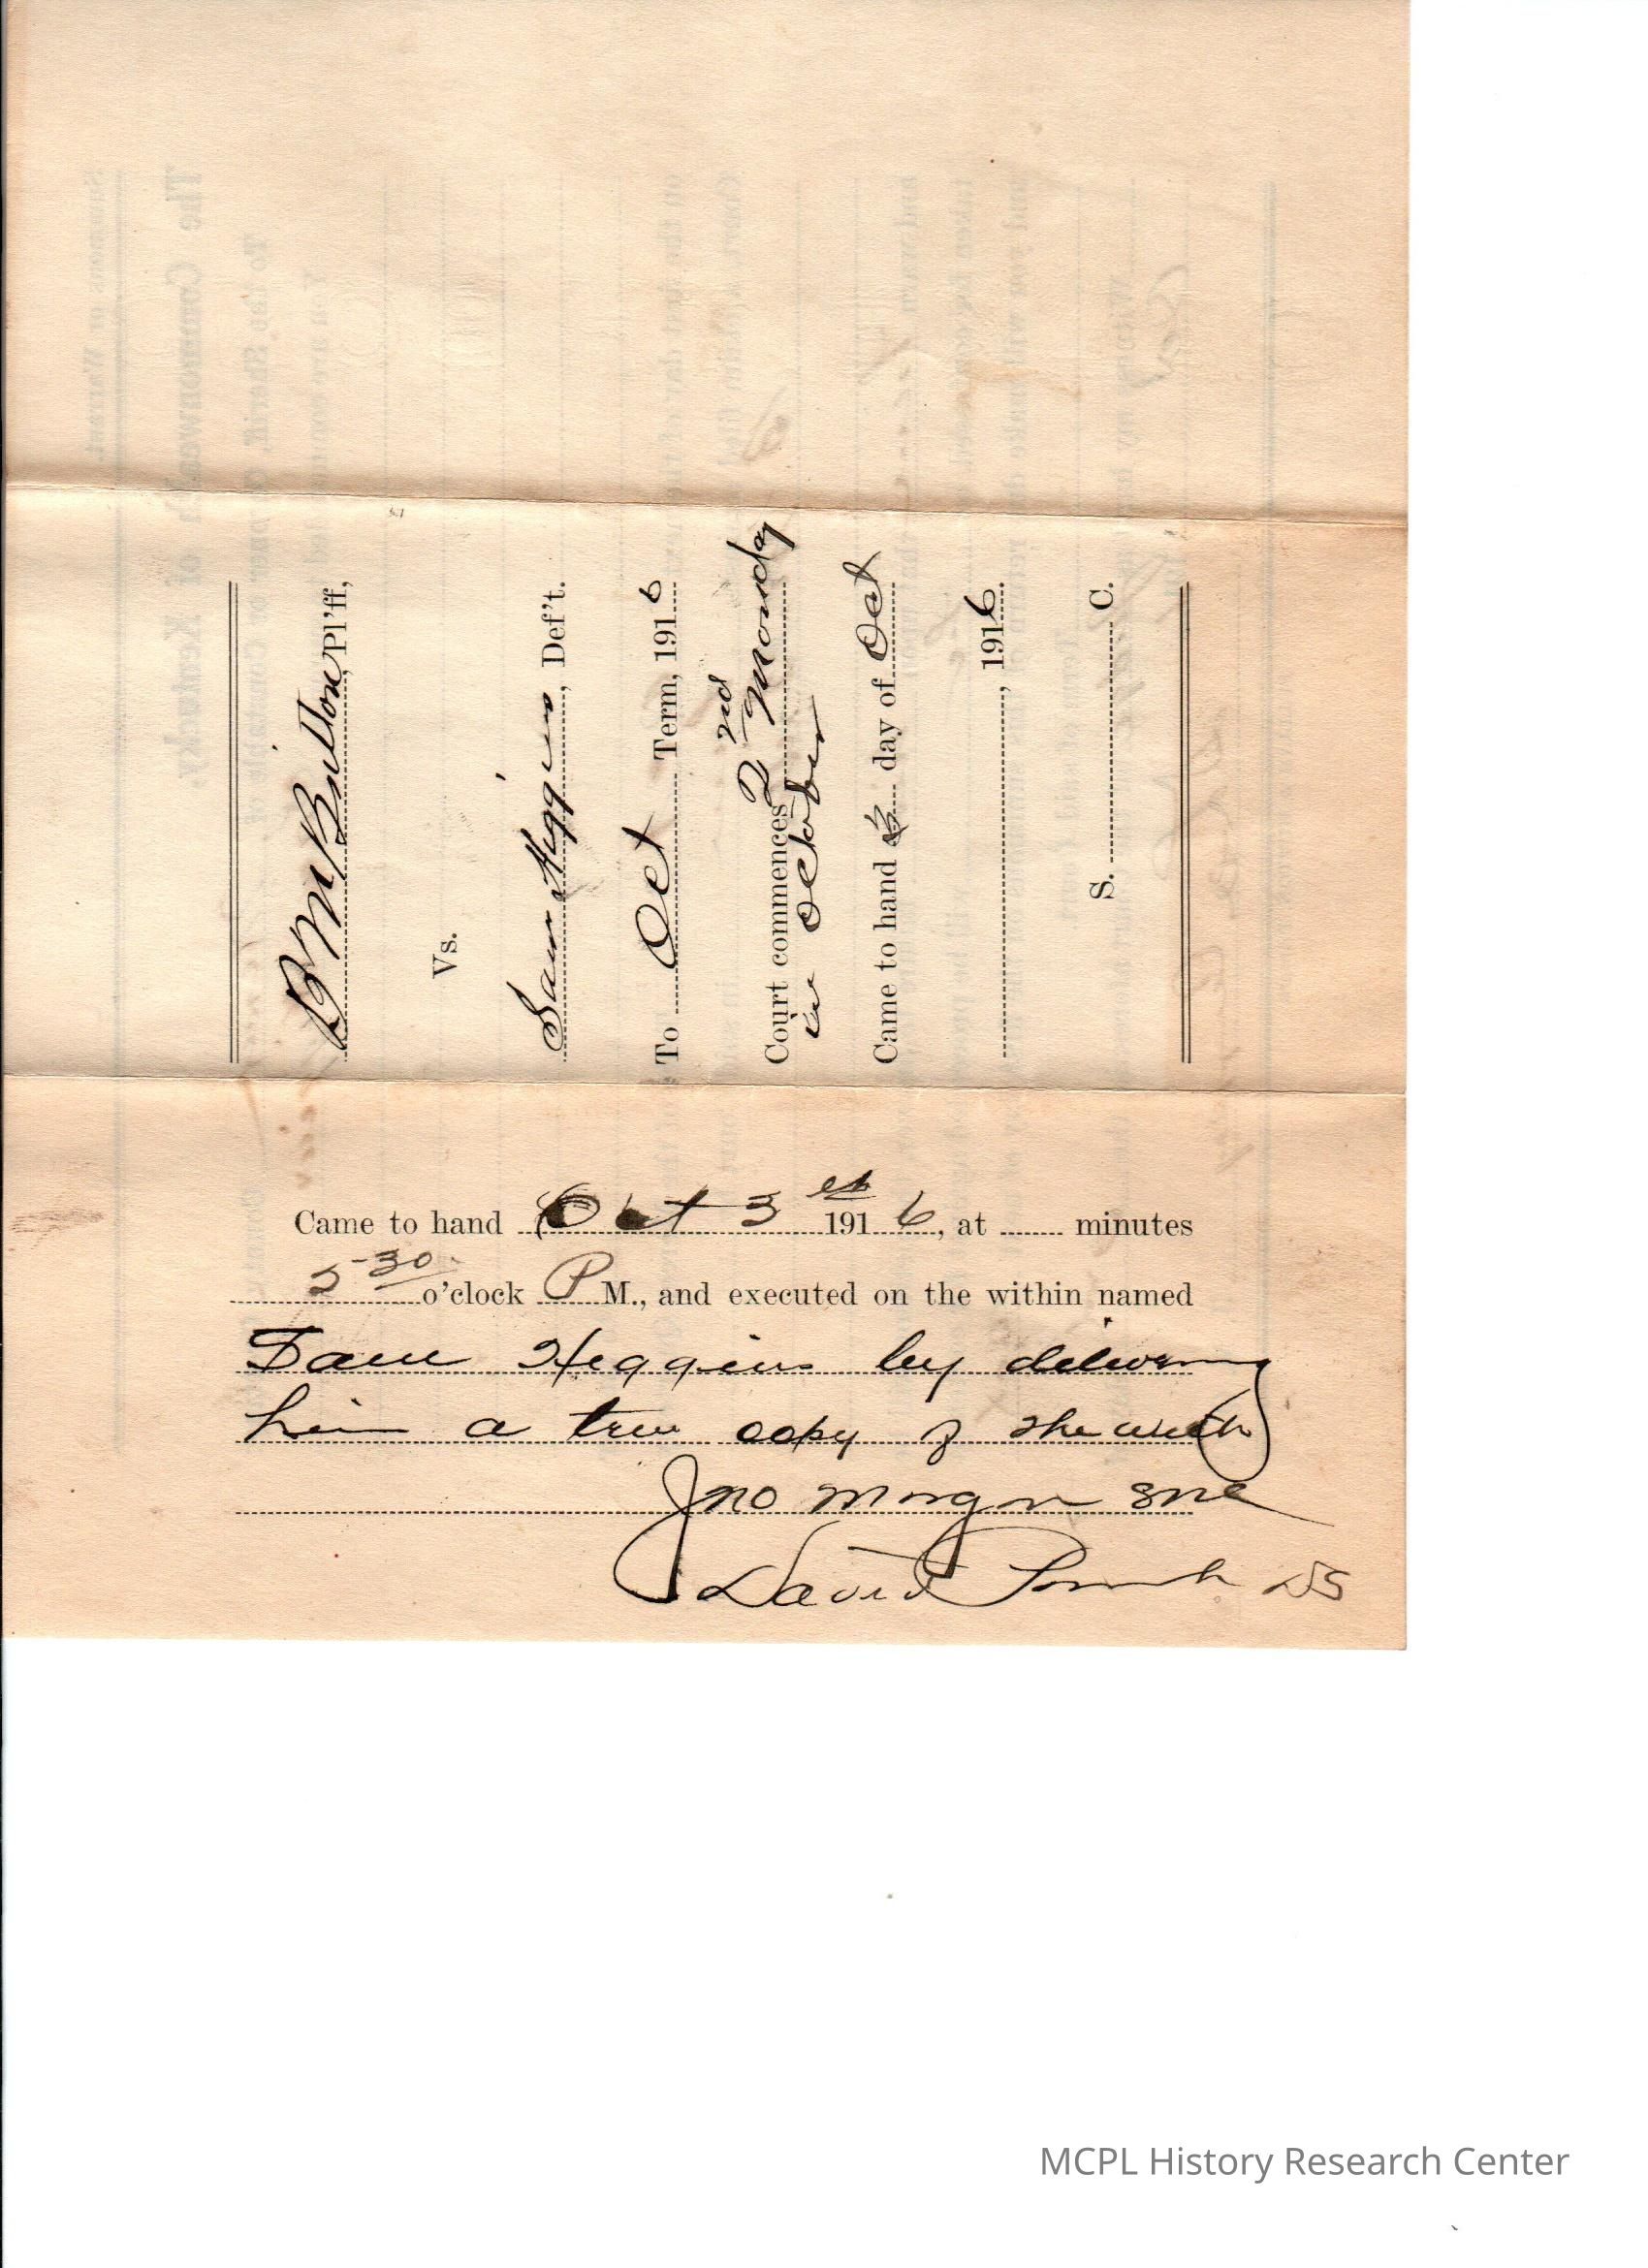 B M Britton, Pl'ff,
Vs.
Sam Higgins, Def't.
To Oct Term, 1916
Court commences 2nd Monday
in October
Came to hand 3 day of Oct
, 1916.
S. C.
Came to hand Oct 3 1916, at minutes
5-30 o'clock P M., and executed on the within named
Sam Higgins by delivering
him a true copy of the
Jno Morgan
David DS
MCPL History Research Center